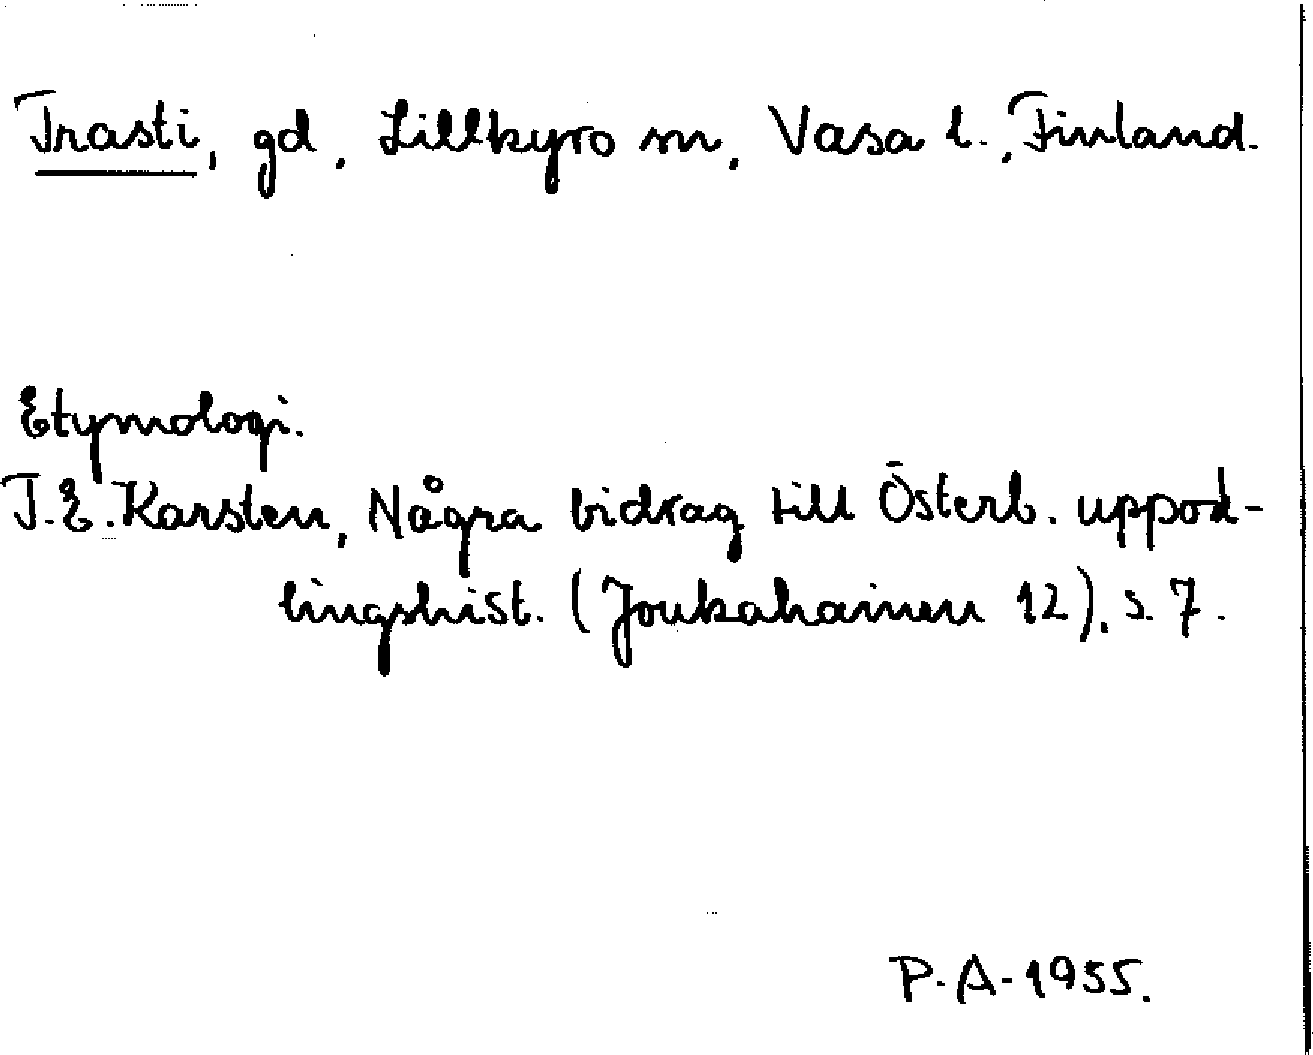 Trasti, gd, Lillkyro sn, Vasa l., Finland.
Etymologi.
T.E. Karsten, Några bidrag till Österb. uppod-
lingshist. (Joukahainen 12), s. 7.
P.A. 1955.